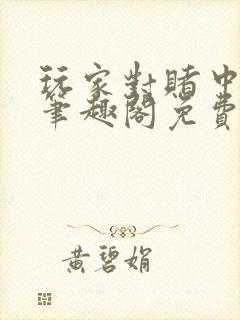 玩家對賭中
筆趣閣免費
黃碧娟